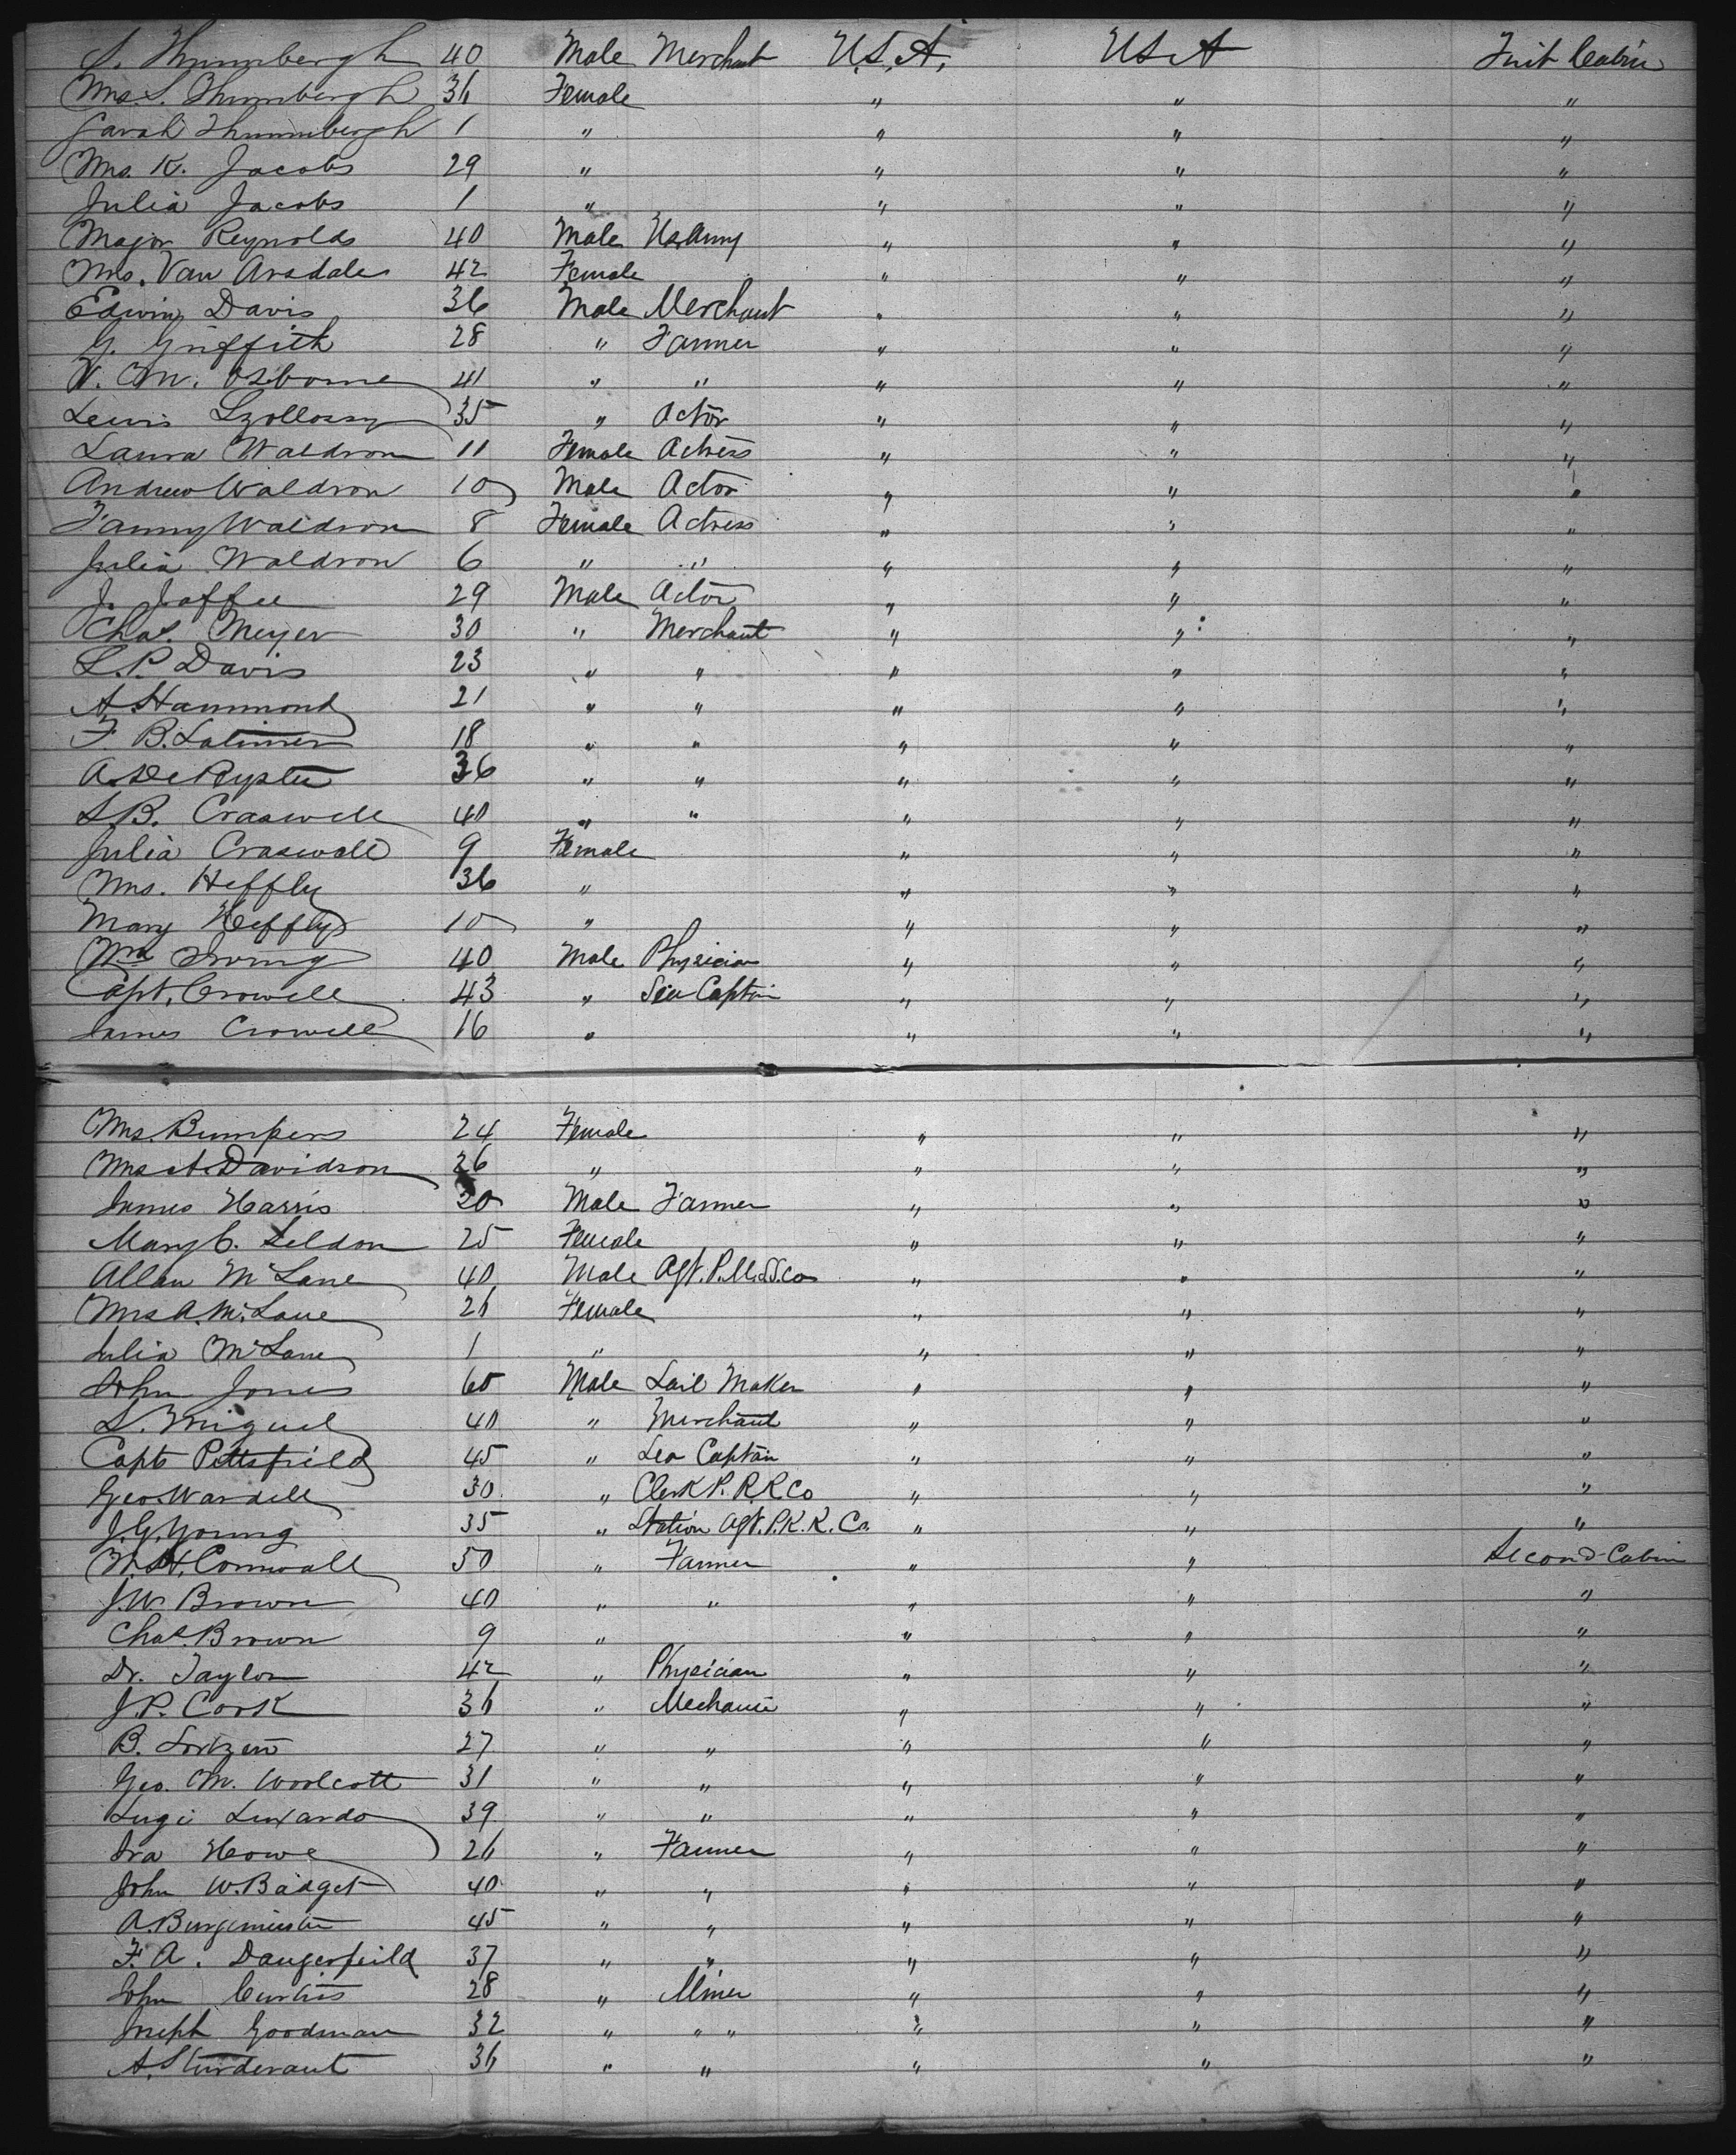 S. Thurnbergh 40 Male Merchant U.S.A. U.S.A First Cabin
Mrs. S. Thurnbergh 36 Female " " "
Sarah Thurnbergh 1 " " " "
Mrs. K. Jacobs 29 " " " "
Julia Jacobs 1 " " " "
Major Reynolds 40 Male Us Army " " "
Mrs. Van Arsdale 42 Female " " "
Edwin Davis 36 Male Merchant " " "
G. Griffith 28 " Farmer " " "
W. M. Osborne 41 " " " " "
Lewis Szollossy 35 " Actor " " "
Laura Waldron 11 Female Actress " " "
Andrew Waldron 10 Male Actor " " "
Fanny Waldron 8 Female Actress " " "
Julia Waldron 6 " " " " "
J. Jaffee 29 Male Actor " " "
Chas. Meyer 30 " Merchant " " "
L. P. Davis 23 " " " " "
A. Hammond 21 " " " " "
F. B. Latimer 18 " " " " "
A. De 36 " " " " "
S. B. Craswell 40 " " " " "
Julia Craswell 9 Female " " "
Mrs. Heffly 36 " " " "
Mary Heffly 10 " " " "
Wm Irving 40 Male Physician " " "
Capt. Crowell 43 " Sea Captain " " "
James Crowell 16 " " " "
Mrs. Bumpers 24 Female " " "
Mrs A. Davidson 26 " " " "
James Harris 20 Male Farmer " " "
Mary C. Seldon 25 Female " " "
Allan McLane 40 Male Agt. P.M.S.S.Co " " "
Mrs A. McLane 26 Female " " "
Julia McLane 1 " " " "
John Jones 60 Male Sail Maker " " "
S. Miguel 40 " Merchant " " "
Capt Pittsfield 45 " Sea Captain " " "
Geo Wardell 30 " Clerk P. R. R Co " " "
J. G. Young 35 " Station Agt. P. R. R. Co. " " "
W. H. Cornwall 50 " Farmer " " Second Cabin
J. W. Brown 40 " " " " "
Chas. Brown 9 " " " "
Dr. Taylor 42 " Physician " " "
J. P. Cook 36 " Mechanic " " "
B. Lortzen 27 " " " " "
Geo. M. Woolcott 31 " " " " "
Lugi Luxardo 39 " " " " "
Ira Howe 26 " Farmer " " "
John W. Badget 40 " " " " "
A. Burgemeister 45 " " " " "
F. A. Dangerfeild 37 " " " " "
John Curtiss 28 " Miner " " "
Joseph Goodman 32 " " " " " "
A. Sturdevant 36 " " " " "